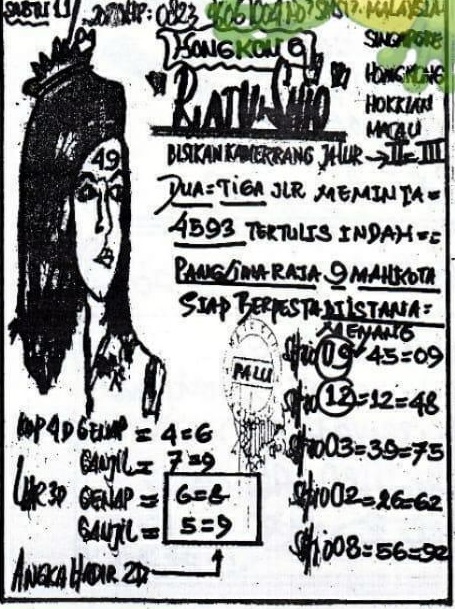 HP: 0823
MALAYSIA
HONGKONG
SINGAPORE
HONGKONG
HOKKIAN
MACAU
"RATU SHIO"
BISIKAN KAMERRANG JALUR → II = III
DUA = TIGA JLR MEMINTA =
4593 TERTULIS INDAH =
PANGLIMA RAJA 9 MAHKOTA
SIAP BERPESTA DIISTANA =
MENANG
49
PALU
SHIO 09 45=09
SHIO 12=12=48
SHIO 03=39=75
SHIO 02=26=62
SHIO 08=56=92
KOP 4D GENAP = 4=6
GANJIL = 7=9
3D GENAP = 6=8
GANJIL = 5=9
ANGKA HADIR 2D